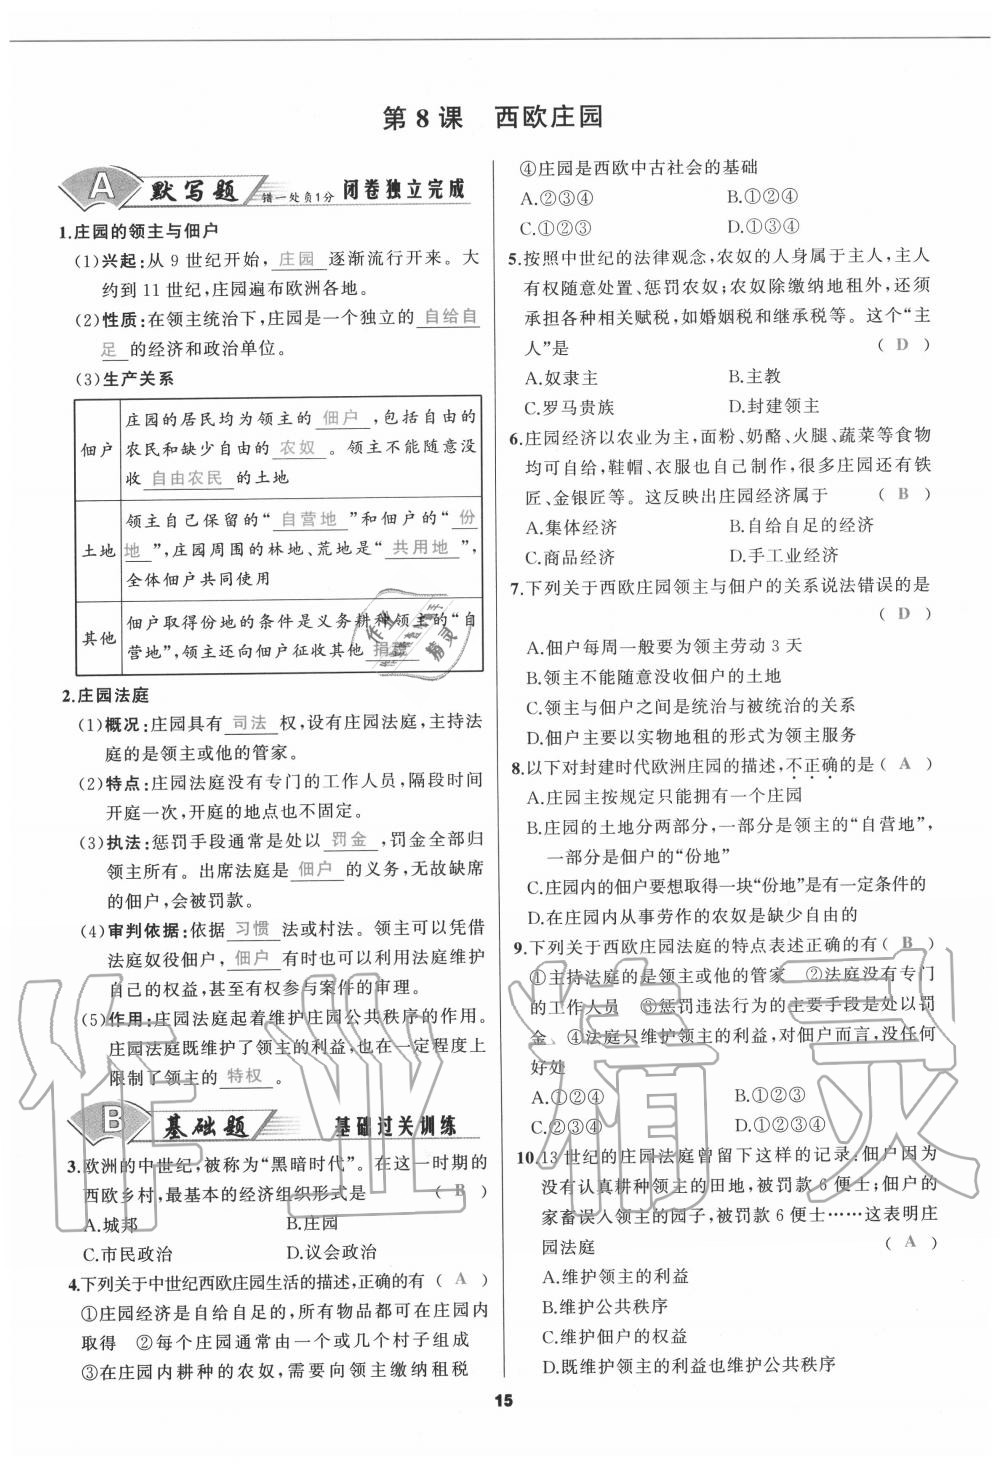 第 8 课　西欧庄园
A 默写题 错一处负1分 闭卷独立完成
1.庄园的领主与佃户
(1)兴起:从 9 世纪开始, 庄园 逐渐流行开来。大
约到 11 世纪,庄园遍布欧洲各地。
(2)性质:在领主统治下,庄园是一个独立的 自给自
足 的经济和政治单位。
(3)生产关系
佃户 庄园的居民均为领主的 佃户 ,包括自由的
农民和缺少自由的 农奴 。领主不能随意没
收 自由农民 的土地
土地 领主自己保留的“ 自营地 ”和佃户的“ 份
地 ”,庄园周围的林地、荒地是“ 共用地 ”,
全体佃户共同使用
其他 佃户取得份地的条件是义务耕种领主的“自
营地”,领主还向佃户征收其他 捐税
2.庄园法庭
(1)概况:庄园具有 司法 权,设有庄园法庭,主持法
庭的是领主或他的管家。
(2)特点:庄园法庭没有专门的工作人员,隔段时间
开庭一次,开庭的地点也不固定。
(3)执法:惩罚手段通常是处以 罚金 ,罚金全部归
领主所有。出席法庭是 佃户 的义务,无故缺席
的佃户,会被罚款。
(4)审判依据:依据 习惯 法或村法。领主可以凭借
法庭奴役佃户, 佃户 有时也可以利用法庭维护
自己的权益,甚至有权参与案件的审理。
(5)作用:庄园法庭起着维护庄园公共秩序的作用。
庄园法庭既维护了领主的利益,也在一定程度上
限制了领主的 特权 。
B 基础题 基础过关训练
3.欧洲的中世纪,被称为“黑暗时代”。在这一时期的
西欧乡村,最基本的经济组织形式是 ( B )
A.城邦 B.庄园
C.市民政治 D.议会政治
4.下列关于中世纪西欧庄园生活的描述,正确的有 ( A )
①庄园经济是自给自足的,所有物品都可在庄园内
取得 ②每个庄园通常由一个或几个村子组成
③在庄园内耕种的农奴,需要向领主缴纳租税
④庄园是西欧中古社会的基础
A.②③④ B.①②④
C.①②③ D.①③④
5.按照中世纪的法律观念,农奴的人身属于主人,主人
有权随意处置、惩罚农奴;农奴除缴纳地租外,还须
承担各种相关赋税,如婚姻税和继承税等。这个“主
人”是 ( D )
A.奴隶主 B.主教
C.罗马贵族 D.封建领主
6.庄园经济以农业为主,面粉、奶酪、火腿、蔬菜等食物
均可自给,鞋帽、衣服也自己制作,很多庄园还有铁
匠、金银匠等。这反映出庄园经济属于 ( B )
A.集体经济 B.自给自足的经济
C.商品经济 D.手工业经济
7.下列关于西欧庄园领主与佃户的关系说法错误的是
( D )
A.佃户每周一般要为领主劳动 3 天
B.领主不能随意没收佃户的土地
C.领主与佃户之间是统治与被统治的关系
D.佃户主要以实物地租的形式为领主服务
8.以下对封建时代欧洲庄园的描述,不正确的是( A )
A.庄园主按规定只能拥有一个庄园
B.庄园的土地分两部分,一部分是领主的“自营地”,
一部分是佃户的“份地”
C.庄园内的佃户要想取得一块“份地”是有一定条件的
D.在庄园内从事劳作的农奴是缺少自由的
9.下列关于西欧庄园法庭的特点表述正确的有( B )
①主持法庭的是领主或他的管家 ②法庭没有专门
的工作人员 ③惩罚违法行为的主要手段是处以罚
金 ④法庭只维护领主的利益,对佃户而言,没任何
好处
A.①②④ B.①②③
C.②③④ D.①③④
10.13 世纪的庄园法庭曾留下这样的记录:佃户因为
没有认真耕种领主的田地,被罚款 6 便士;佃户的
家畜误入领主的园子,被罚款 6 便士……这表明庄
园法庭 ( A )
A.维护领主的利益
B.维护公共秩序
C.维护佃户的权益
D.既维护领主的利益也维护公共秩序
15
作业精灵